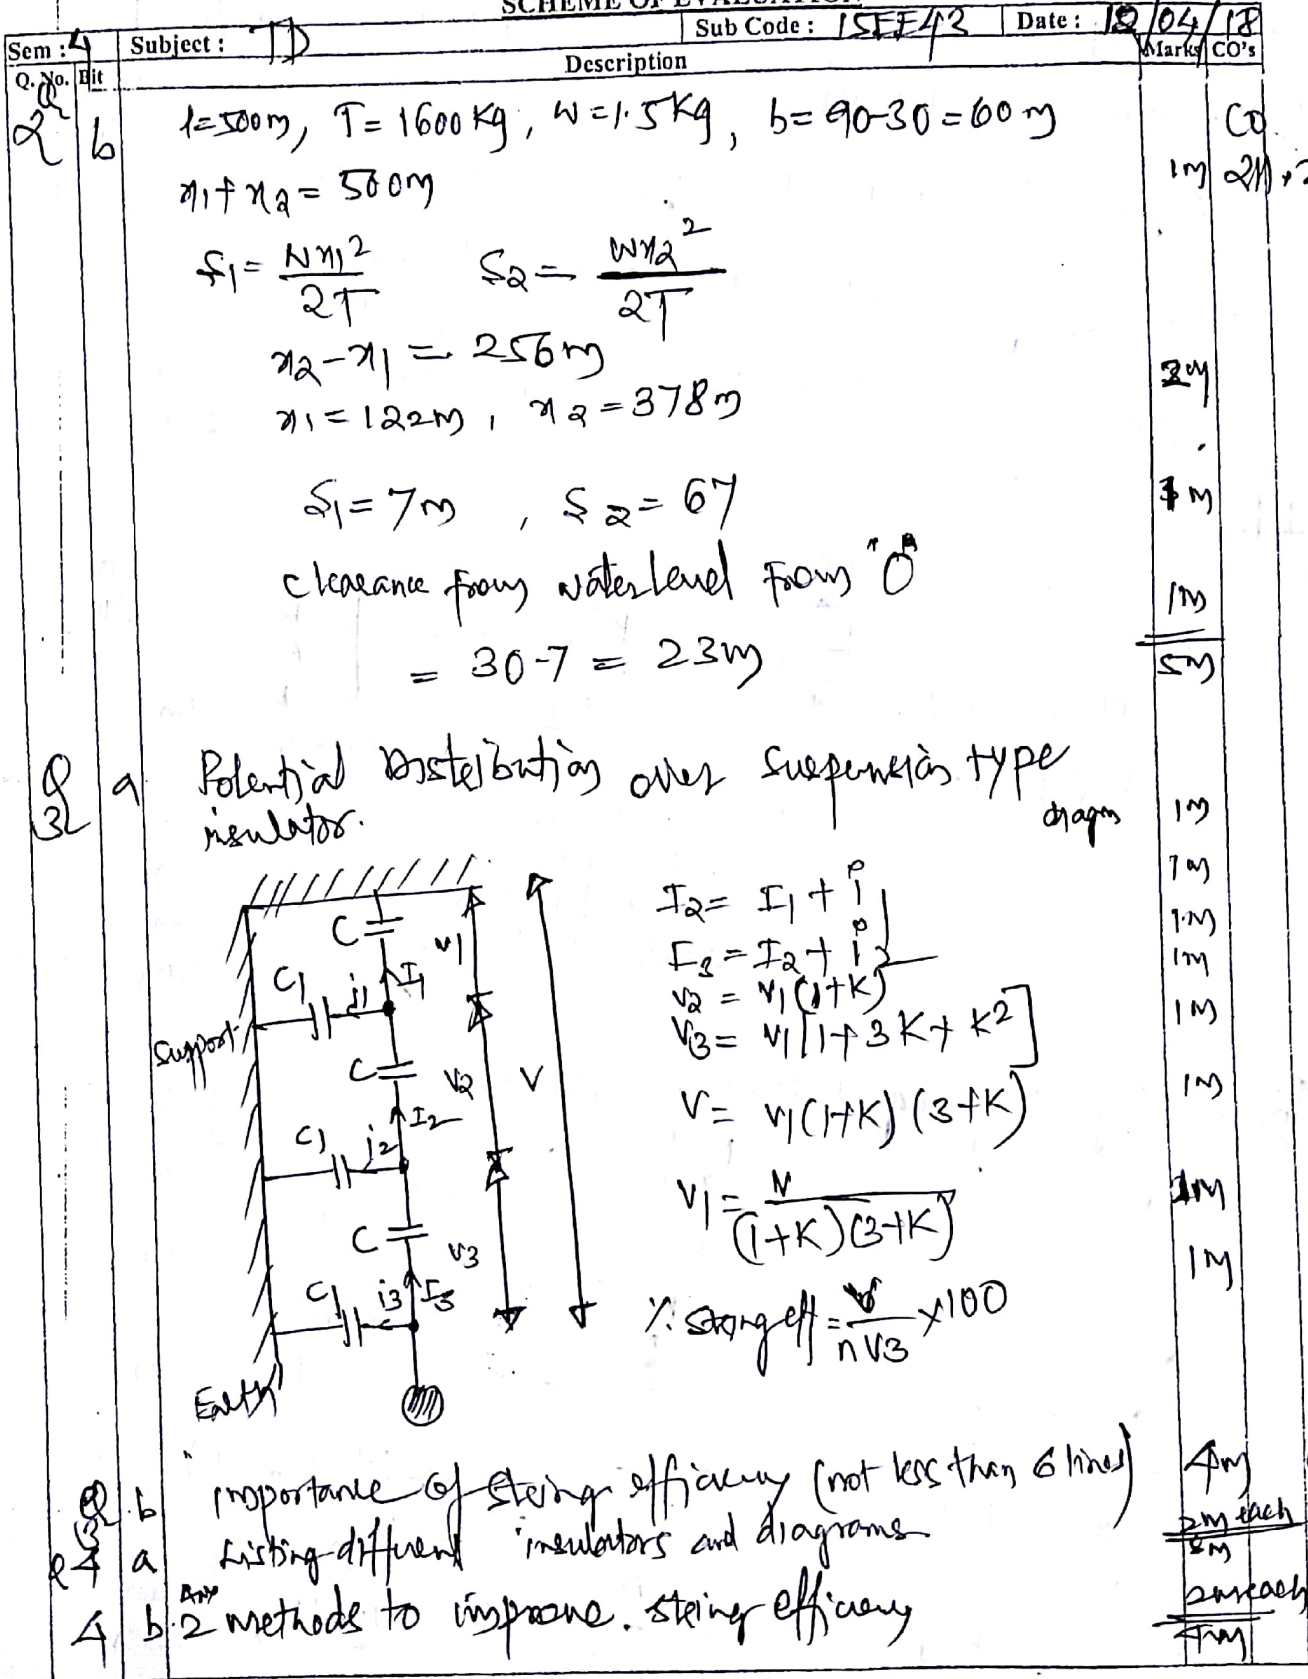 SCHEME OF EVALUATION
Sem : 4 Subject : TD Sub Code : 15EE43 Date : 12/04/18
Q. No. Bit Description Marks CO's
Q2 b l=500m, T=1600Kg, W=1.5Kg, b=90-30=60m CO
x1+x2=500m 1M
f1=Wx1²/2T S2=Wx2²/2T
x2-x1=256m 2M
x1=122m, x2=378m
S1=7m, S2=67 1M
Clearance from water level from "O" 1M
=30-7=23m 5M
Q3 a Potential Distribution over suspension type
insulator. diagm 1M
I2=I1+i1 1M
I3=I2+i2 1M
1M
V2=V1(1+K)
V3=V1[1+3K+K2] 1M
V=V1(1+K)(3+K) 1M
V1=V/(1+K)(3+K) 1M
% string eff=V/nV3 x100 1M
C V1
C1 i1 I1
Support
C V2 V
C1 i2 I2
C V3
C1 i3 I3
Earth
Q3 b importance of string efficiency (not less than 6 lines) 4M
Q4 a Listing different insulators and diagrams 2m each
8M
4 b. Any 2 methods to improve. string efficiency 2m each
4M